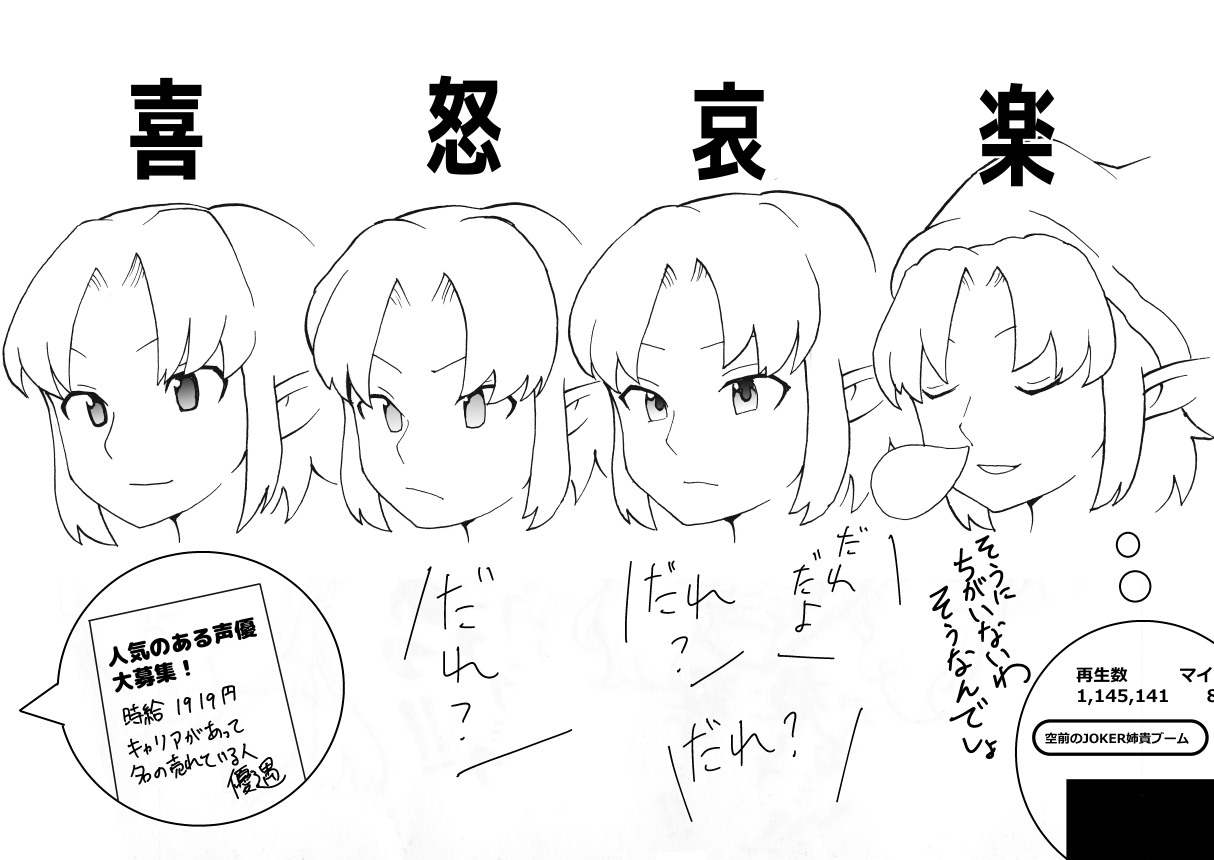 喜
怒
哀
楽
人気のある声優
大募集！
時給 1919円
キャリアがあって
名の売れている人
優遇
だれ？
だれ
だよ
だれ？
だれ？
そうに
ちがいないわ
そうなんでしょ
再生数
マイ
1,145,141
8
空前のJOKER姉貴ブーム